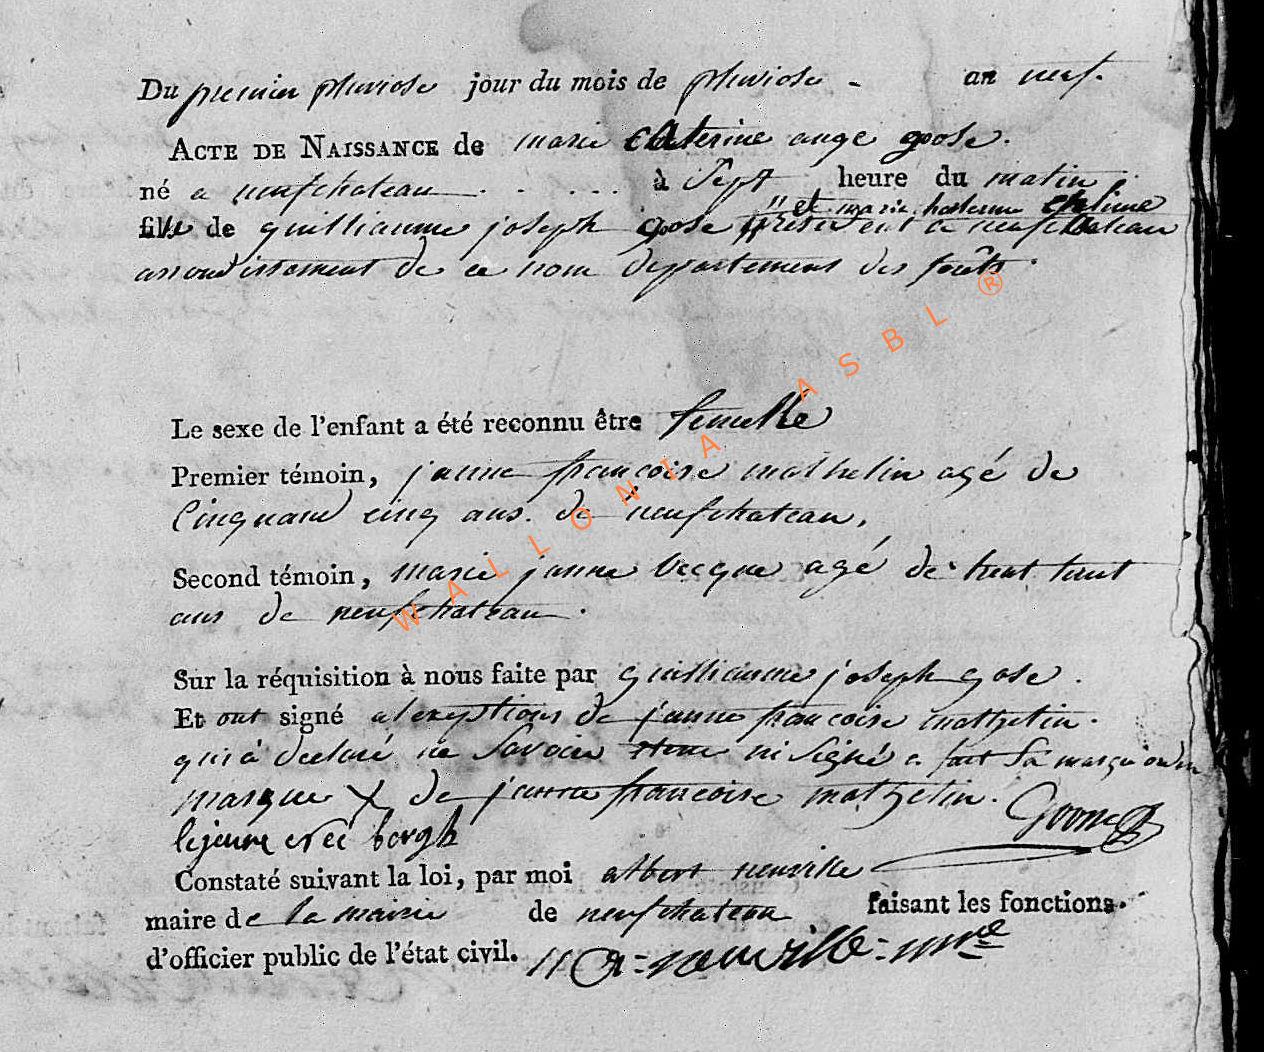 Du premier pluviose jour du mois de pluviose - an neuf.
ACTE DE NAISSANCE de marie Caterine ange goose.
né a neufchateau à Sept heure du matin
et marie Catherine
fille de guilliaume joseph gose a neufchateau
arrondissement de ce nom departement des forêts.
Le sexe de l'enfant a été reconnu être femelle
Premier témoin, janne francoise mathelin agé de
Cinquand cinq ans. de neufchateau,
Second témoin, marie janne becque agé de trent huit
ans de neufchateau.
Sur la réquisition à nous faite par guilliaume joseph gose.
Et ont signé a lexeptions de janne francoise mathelin.
qui à declaré ne Savoir ni Signé a fait Sa marque
marque X de janne francoise mathelin.
lejeune
Constaté suivant la loi, par moi albert neuville
maire de la mairie de neufchateau faisant les fonctions
d'officier public de l'état civil. A = neuville = mre
WALLONIA ASBL ®